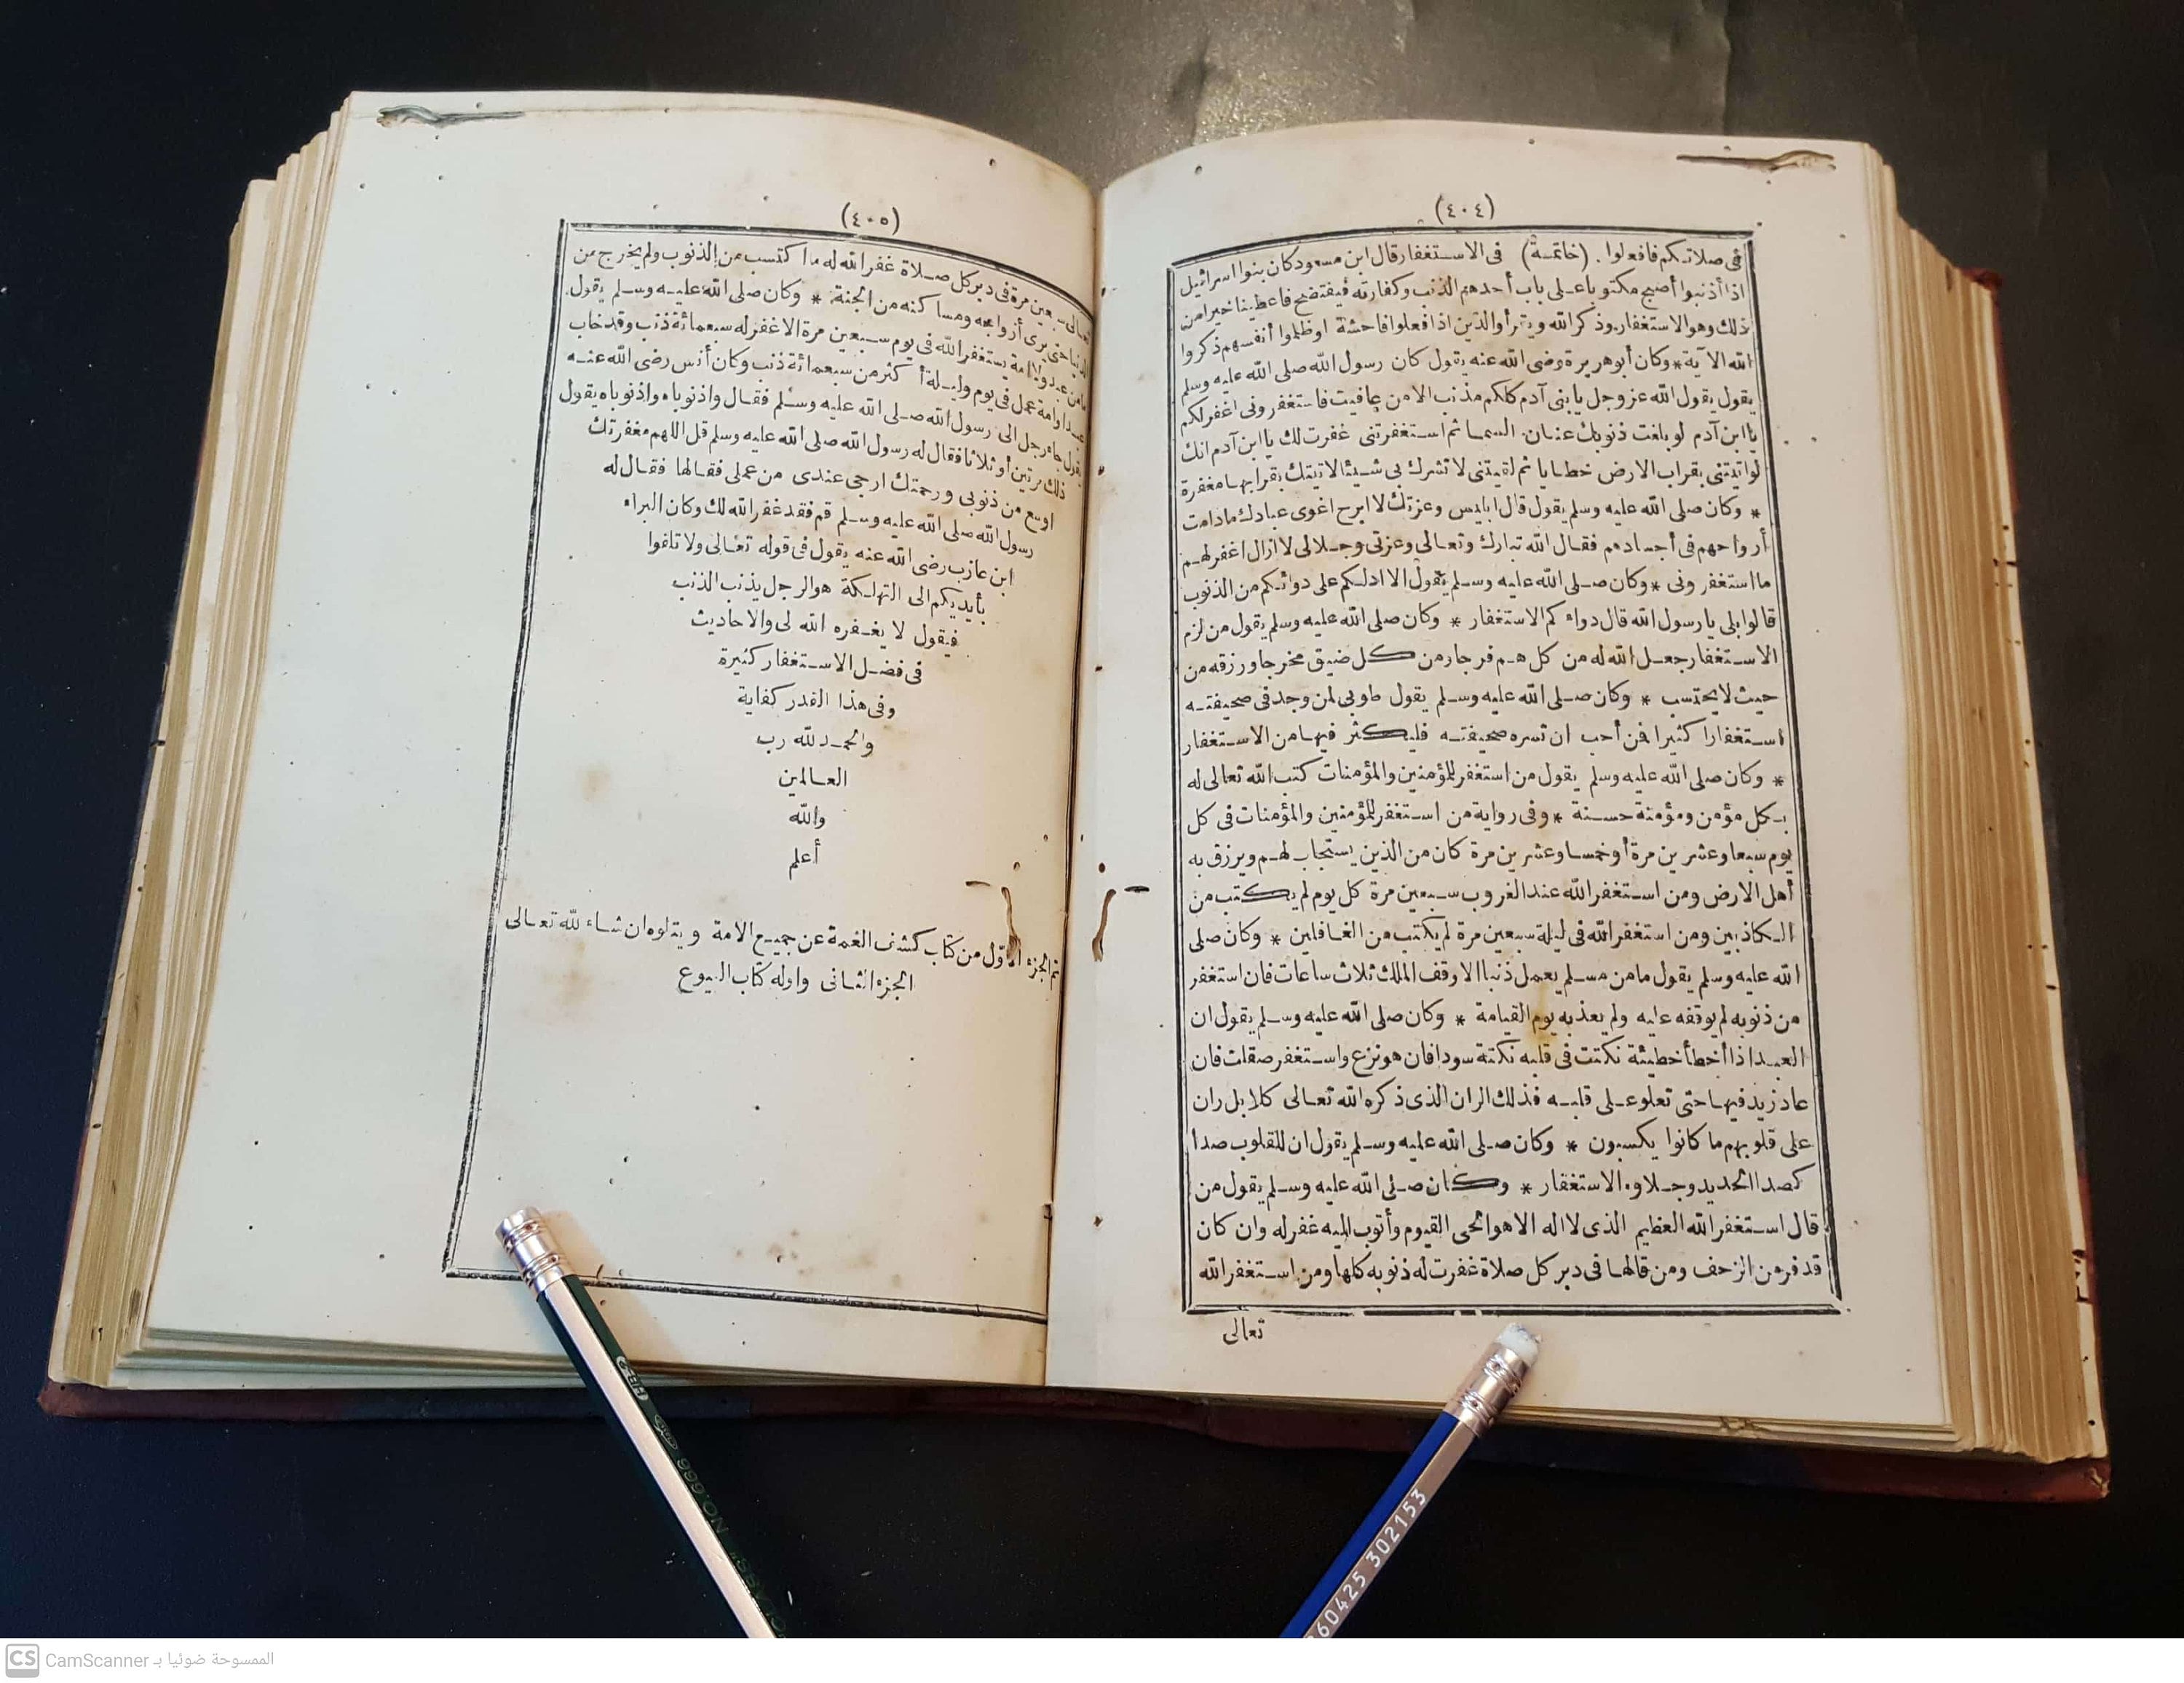 (٤٠٤)
فى صلاتكم فافعلوا . (خاتمة) فى الاستغفار قال ابن مسعود كان بنوا اسرائيل
اذا أذنبوا أصبح مكتوبا على باب أحدهم الذنب وكفارته فيفتضح فاعطينا خيرا من
ذلك وهو الاستغفار وذكر الله ويقرأ والذين اذا فعلوا فاحشة اوظلموا أنفسهم ذكروا
الله الآية * وكان أبو هريرة رضى الله عنه يقول كان رسول الله صلى الله عليه وسلم
يقول يقول الله عز وجل يا بنى آدم كلكم مذنب الا من عافيت فاستغفرونى اغفر لكم
يا ابن آدم لو بلغت ذنوبك عنان السما ثم استغفرتنى غفرت لك يا ابن آدم انك
لو اتيتنى بقراب الارض خطايا ثم لقيتنى لا تشرك بى شيئا لاتيتك بقرابها مغفرة
* وكان صلى الله عليه وسلم يقول قال ابليس وعزتك لا ابرح اغوى عبادك مادامت
أرواحهم فى أجسادهم فقال الله تبارك وتعالى وعزتى وجلالى لا ازال اغفر لهم
ما استغفرونى * وكان صلى الله عليه وسلم يقول الا ادلكم على دوائكم من الذنوب
قالوا بلى يا رسول الله قال دواءكم الاستغفار * وكان صلى الله عليه وسلم يقول من لزم
الاستغفار جعل الله له من كل هم فرجا ومن كل ضيق مخرجا ورزقه من
حيث لا يحتسب * وكان صلى الله عليه وسلم يقول طوبى لمن وجد فى صحيفته
استغفارا كثيرا فمن أحب ان تسره صحيفته فليكثر فيها من الاستغفار
* وكان صلى الله عليه وسلم يقول من استغفر للمؤمنين والمؤمنات كتب الله تعالى له
بكل مؤمن ومؤمنة حسنة * وفى رواية من استغفر للمؤمنين والمؤمنات فى كل
يوم سبعا وعشرين مرة أو خمسا وعشرين مرة كان من الذين يستجاب لهم ويرزق به
أهل الارض ومن استغفر الله عند الغروب سبعين مرة كل يوم لم يكتب من
الكاذبين ومن استغفر الله فى ليلة سبعين مرة لم يكتب من الغافلين * وكان صلى
الله عليه وسلم يقول ما من مسلم يعمل ذنبا الا وقف الملك ثلاث ساعات فان استغفر
من ذنوبه لم يوقفه عليه ولم يعذبه يوم القيامة * وكان صلى الله عليه وسلم يقول ان
العبد اذا أخطأ خطيئة نكتت فى قلبه نكتة سودا فان هو نزع واستغفر صقلت فان
عاد زيد فيها حتى تعلو على قلبه فذلك الران الذى ذكره الله تعالى كلا بل ران
على قلوبهم ما كانوا يكسبون * وكان صلى الله عليه وسلم يقول ان للقلوب صدأ
كصدا الحديد وجلاوه الاستغفار * وكان صلى الله عليه وسلم يقول من
قال استغفر الله العظيم الذى لا اله الا هو الحى القيوم وأتوب اليه غفر له وان كان
قد فر من الزحف ومن قالها فى دبر كل صلاة غفرت له ذنوبه كلها ومن استغفر الله
تعالى
(٤٠٥)
تعالى سبعين مرة فى دبر كل صلاة غفر الله له ما اكتسب من الذنوب ولم يخرج من
الدنيا حتى يرى أزواجه ومساكنه من الجنة * وكان صلى الله عليه وسلم يقول
ما من عبد ولا امة يستغفر الله فى يوم سبعين مرة الا غفر له سبعمائة ذنب وقد خاب
عبد او امة عمل فى يوم وليلة أكثر من سبعمائة ذنب وكان أنس رضى الله عنه
يقول جاء رجل الى رسول الله صلى الله عليه وسلم فقال واذنوباه واذنوباه يقول
ذلك مرتين أو ثلاثا فقال له رسول الله صلى الله عليه وسلم قل اللهم مغفرتك
اوسع من ذنوبى ورحمتك ارجى عندى من عملى فقالها فقال له
رسول الله صلى الله عليه وسلم قم فقد غفر الله لك وكان البراء
ابن عازب رضى الله عنه يقول فى قوله تعالى ولا تلقوا
بأيديكم الى التهلكة هو الرجل يذنب الذنب
فيقول لا يغفره الله لى والاحاديث
فى فضل الاستغفار كثيرة
وفى هذا القدر كفاية
والحمد لله رب
العالمين
والله
أعلم
تم الجزء الاوّل من كتاب كشف الغمة عن جميع الامة ويتلوه ان شاء لله تعالى
الجزء الثانى واوله كتاب البيوع
NO.666
HB
060425 302153
CS CamScanner الممسوحة ضوئيا بـ